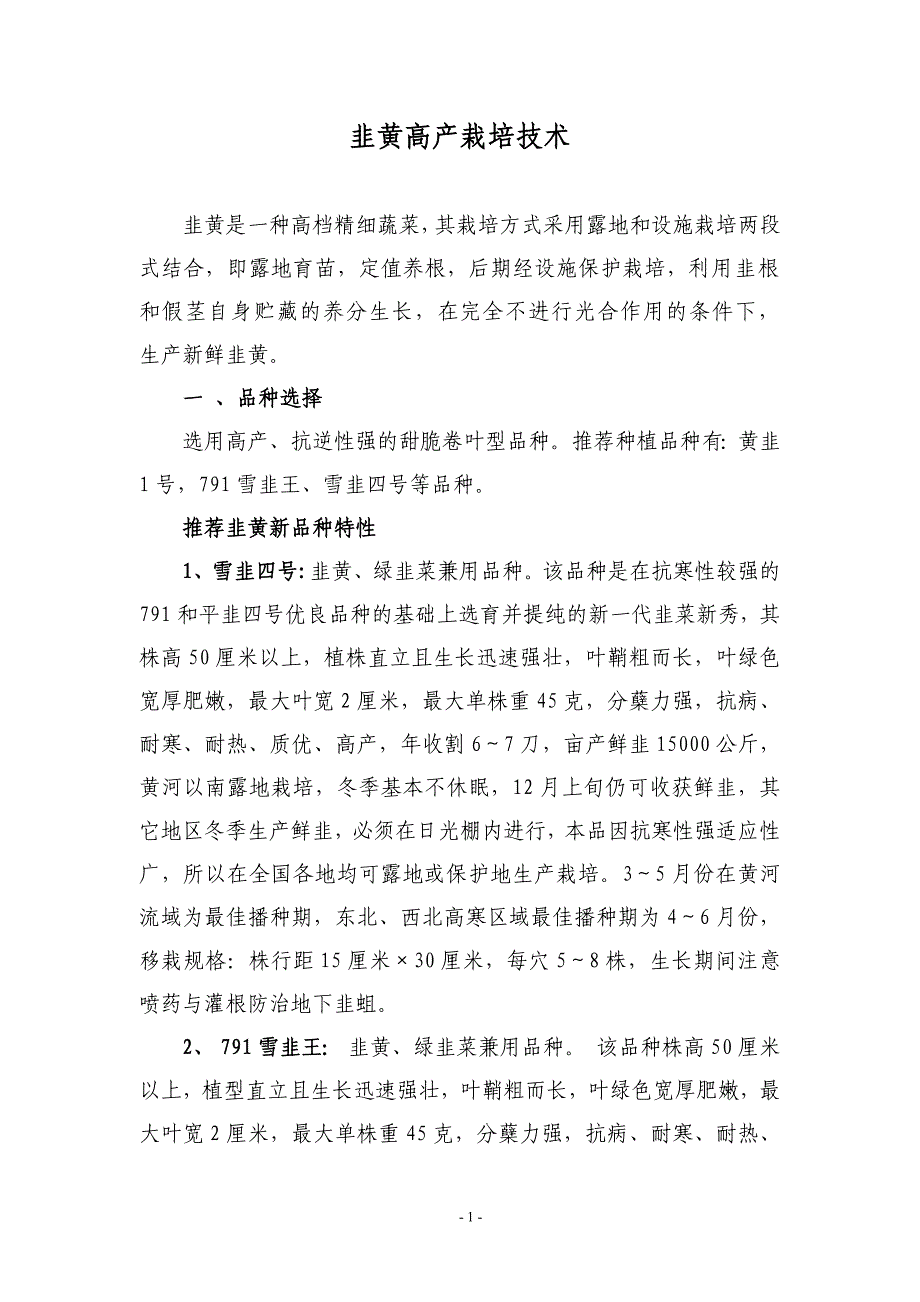 韭黄高产栽培技术
韭黄是一种高档精细蔬菜，其栽培方式采用露地和设施栽培两段
式结合，即露地育苗，定值养根，后期经设施保护栽培，利用韭根
和假茎自身贮藏的养分生长，在完全不进行光合作用的条件下，
生产新鲜韭黄。
一 、品种选择
选用高产、抗逆性强的甜脆卷叶型品种。推荐种植品种有：黄韭
1号，791雪韭王、雪韭四号等品种。
推荐韭黄新品种特性
1、雪韭四号：韭黄、绿韭菜兼用品种。该品种是在抗寒性较强的
791和平韭四号优良品种的基础上选育并提纯的新一代韭菜新秀，其
株高50厘米以上，植株直立且生长迅速强壮，叶鞘粗而长，叶绿色
宽厚肥嫩，最大叶宽2厘米，最大单株重45克，分蘖力强，抗病、
耐寒、耐热、质优、高产，年收割6~7刀，亩产鲜韭15000公斤，
黄河以南露地栽培，冬季基本不休眠，12月上旬仍可收获鲜韭，其
它地区冬季生产鲜韭，必须在日光棚内进行，本品因抗寒性强适应性
广，所以在全国各地均可露地或保护地生产栽培。3~5月份在黄河
流域为最佳播种期，东北、西北高寒区域最佳播种期为4~6月份，
移栽规格：株行距15厘米×30厘米，每穴5~8株，生长期间注意
喷药与灌根防治地下韭蛆。
2、 791雪韭王： 韭黄、绿韭菜兼用品种。 该品种株高50厘米
以上，植型直立且生长迅速强壮，叶鞘粗而长，叶绿色宽厚肥嫩，最
大叶宽2厘米，最大单株重45克，分蘖力强，抗病、耐寒、耐热、
- 1 -